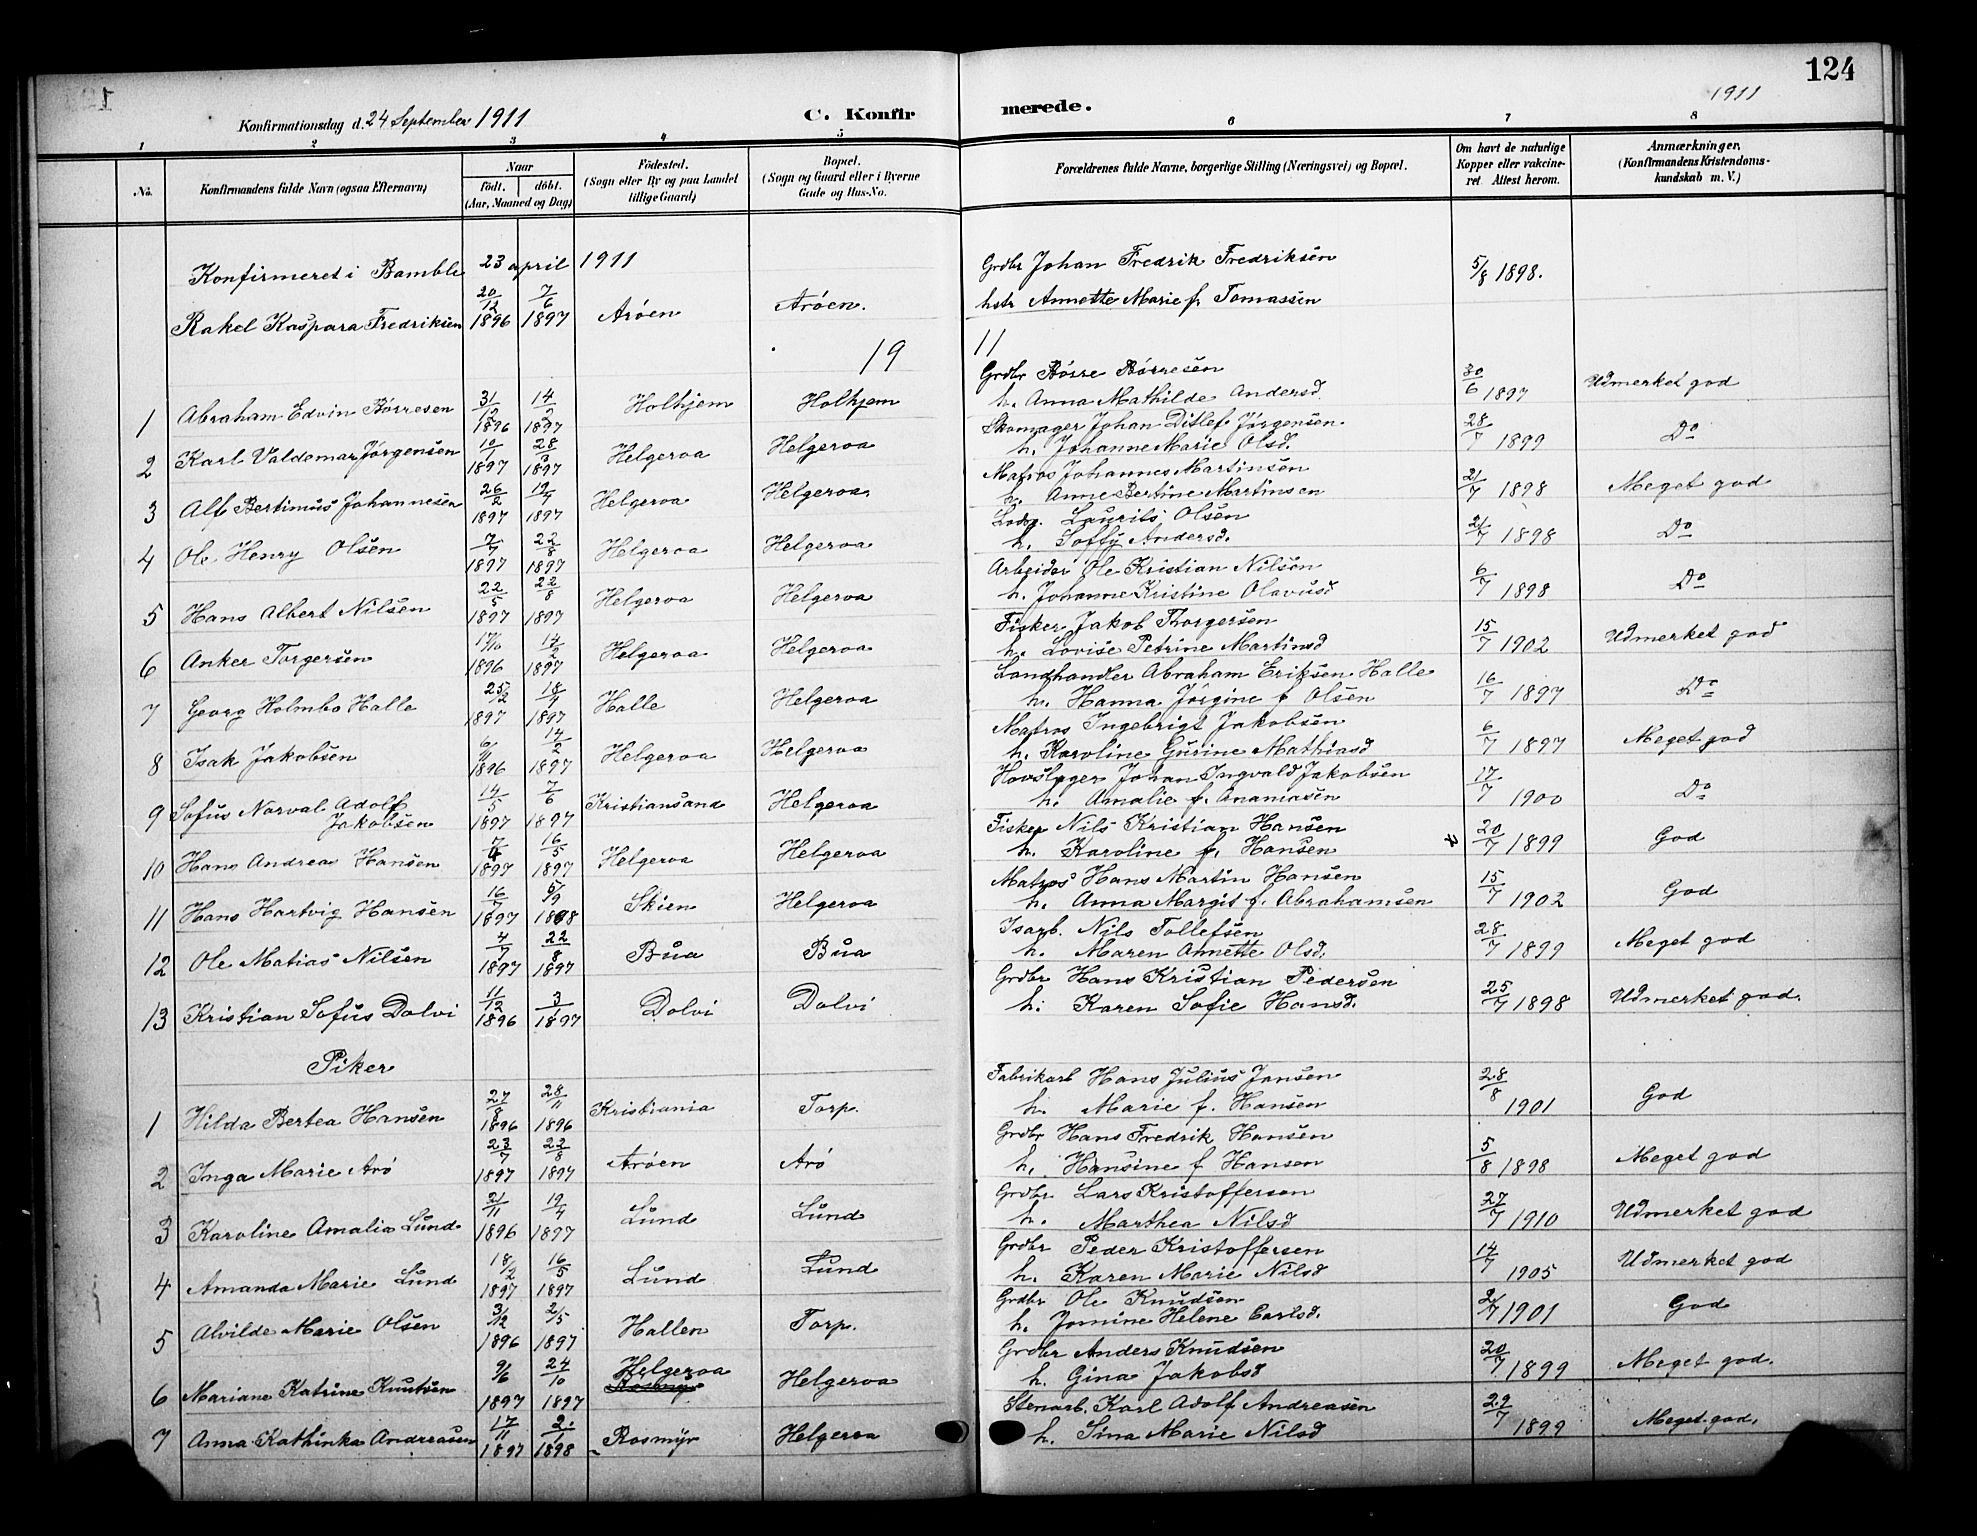 124
Konfirmationsdag d. 24 September 1911 C. Konfirmerede. 1911
1 2 3 4 5 6 7 8
No. Konfirmandens fulde Navn (ogsaa Efternavn) Naar födt. döbt. (Aar, Maaned og Dag) Födested. (Sogn eller By og paa Landet tillige Gaard) Bopæl. (Sogn og Gaard eller i Byerne Gade og Hus-No. Forældrenes fulde Navne, borgerlige Stilling (Næringsvei) og Bopæl. Om havt de naturlige Kopper eller vakcineret. Attest herom. Anmærkninger. (Konfirmandens Kristendomskundskab m. V.)
Konfirmeret i Bamble 23 april 1911
Rakel Kaspara Fredriksen 20/12 1896 7/6 1897 Aröen Aröen. Grdbr Johan Fredrik Fredriksen 5/8 1898.
hstr Annette Marie f. Tomassen
1911
1 Abraham Edvin Börresen 31/12 1896 14/2 1897 Holhjem Holhjem Grdbr Börre Börresen 30/6 1897 Udmerket god
h. Anna Mathilde Andersd.
2 Karl Valdemar Jörgensen 10/1 1897 28/3 1897 Helgeroa Helgeroa Skomager Johan Ditlef Jörgensen 28/7 1899 Do
h. Johanne Marie Olsd.
3 Alf Bertinius Johannesen 26/2 1897 1897 Helgeroa Helgeroa Matros Johannes Martinsen 21/7 1898 Meget god
h. Anne Bertine Martinsen
4 Ole Henry Olsen 7/7 1897 22/8 1897 Helgeroa Helgeroa Lods. Laurits Olsen 21/7 1898 Do
h. Soffy Andersd.
5 Hans Albert Nilsen 22/5 1897 22/8 1897 Helgeroa Helgeroa Arbeider Ole Kristian Nilsen 6/7 1898 Do
h. Johanne Kristine Olavusd
6 Anker Torgersen 17/10 1896 14/2 1897 Helgeroa Helgeroa Fisker Jakob Thorgersen 15/7 1902 Udmerket god
h. Lovise Petrine Martinsd
7 Georg Holmbo Halle 25/2 1897 18/4 1897 Halle Helgeroa Landhandler Abraham Eriksen Halle 16/7 1897 Do
h. Hanna Jörgine f Olsen
8 Isak Jakobsen 6/11 1896 14/2 1897 Helgeroa Helgeroa Matros Ingebrigt Jakobsen 6/7 1897 Meget god
h. Karoline Gurine Mathiasd
9 Sofus Norval Adolf Jakobsen 14/5 1897 7/6 1897 Kristiansand Helgeroa Hovslager Johan Ingvald Jakobsen 17/7 1900 Do
h. Amalie f. Ananiasen
10 Hans Andreas Hansen 7/4 1897 16/5 1897 Helgeroa Helgeroa Fisker Nils Kristian Hansen 20/7 1899 God
h. Karoline f. Hansen
11 Hans Hartvig Hansen 16/7 1897 Skien Helgeroa Matros Hans Martin Hansen 15/7 1902 God
h. Anna Margit f. Abrahamsen
12 Ole Matias Nilsen 4/7 1897 22/8 1897 Bua Bua Isarb. Nils Tollefsen 28/7 1899 Meget god
h. Maren Annette Olsd.
13 Kristian Sofus Dolvi 11/12 1896 3/1 1897 Dolvi Dolvi Grdbr Hans Kristian Pedersen 25/7 1898 Udmerket god.
h. Karen Sofie Hansd.
Piker
1 Hilda Bertea Hansen 27/8 1896 28/11 1896 Kristiania Torp. Fabrikarb Hans Julius Jansen 28/8 1901 God
h. Marie f. Hansen
2 Inga Marie Arö 23/7 1897 22/8 1897 Aröen Arö Grdbr Hans Fredrik Hansen 5/8 1898 Meget god
h. Hansine f Hansen
3 Karoline Amalia Lund 21/11 1896 19/4 1897 Lund Lund Grdbr Lars Kristoffersen 27/7 1910 Udmerket god
h. Marthea Nilsd
4 Amanda Marie Lund 18/2 1897 16/5 1897 Lund Lund Grdbr Peder Kristoffersen 14/7 1905 Udmerket god
h. Karen Marie Nilsd
5 Alvilde Marie Olsen 3/12 1896 2/5 1897 Hallen Torp. Grdbr Ole Knudsen 2/7 1901 God
h. Jomine Helene Carlsd.
6 Mariane Katrine Knutsen 9/6 1897 24/10 1897 Helgeroa Helgeroa Grdbr Anders Knudsen 20/7 1899 Meget god.
h. Gina Jakobsd
7 Anna Kathinka Andreasen 17/11 1897 1898 Rosmyr Helgeroa Stenarb. Karl Adolf Andreasen 29/7 1899 Meget god.
h. Sina Marie Nilsd